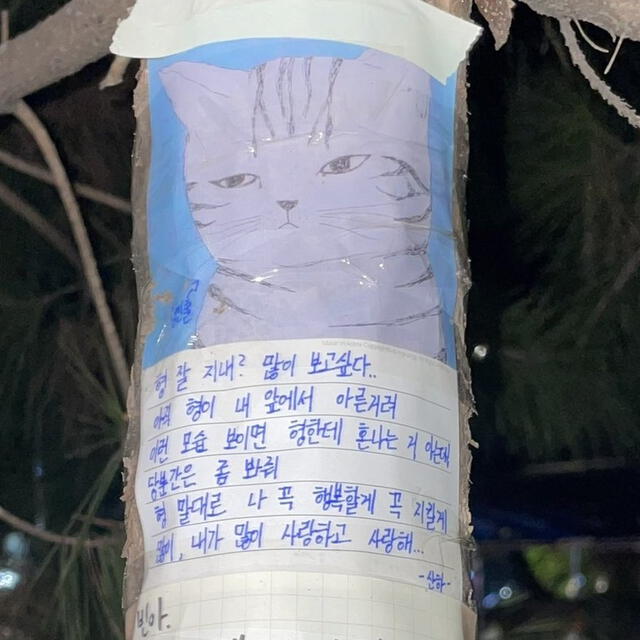 형 잘 지내? 많이 보고싶다..
아직 형이 내 앞에서 아른거려
이런 모습 보이면 형한테 혼나는 거 아는데
당분간은 좀 봐줘
형 말대로 나 꼭 행복할게 꼭 지킬게
내가 많이 사랑하고 사랑해...
-산하-
빈아.